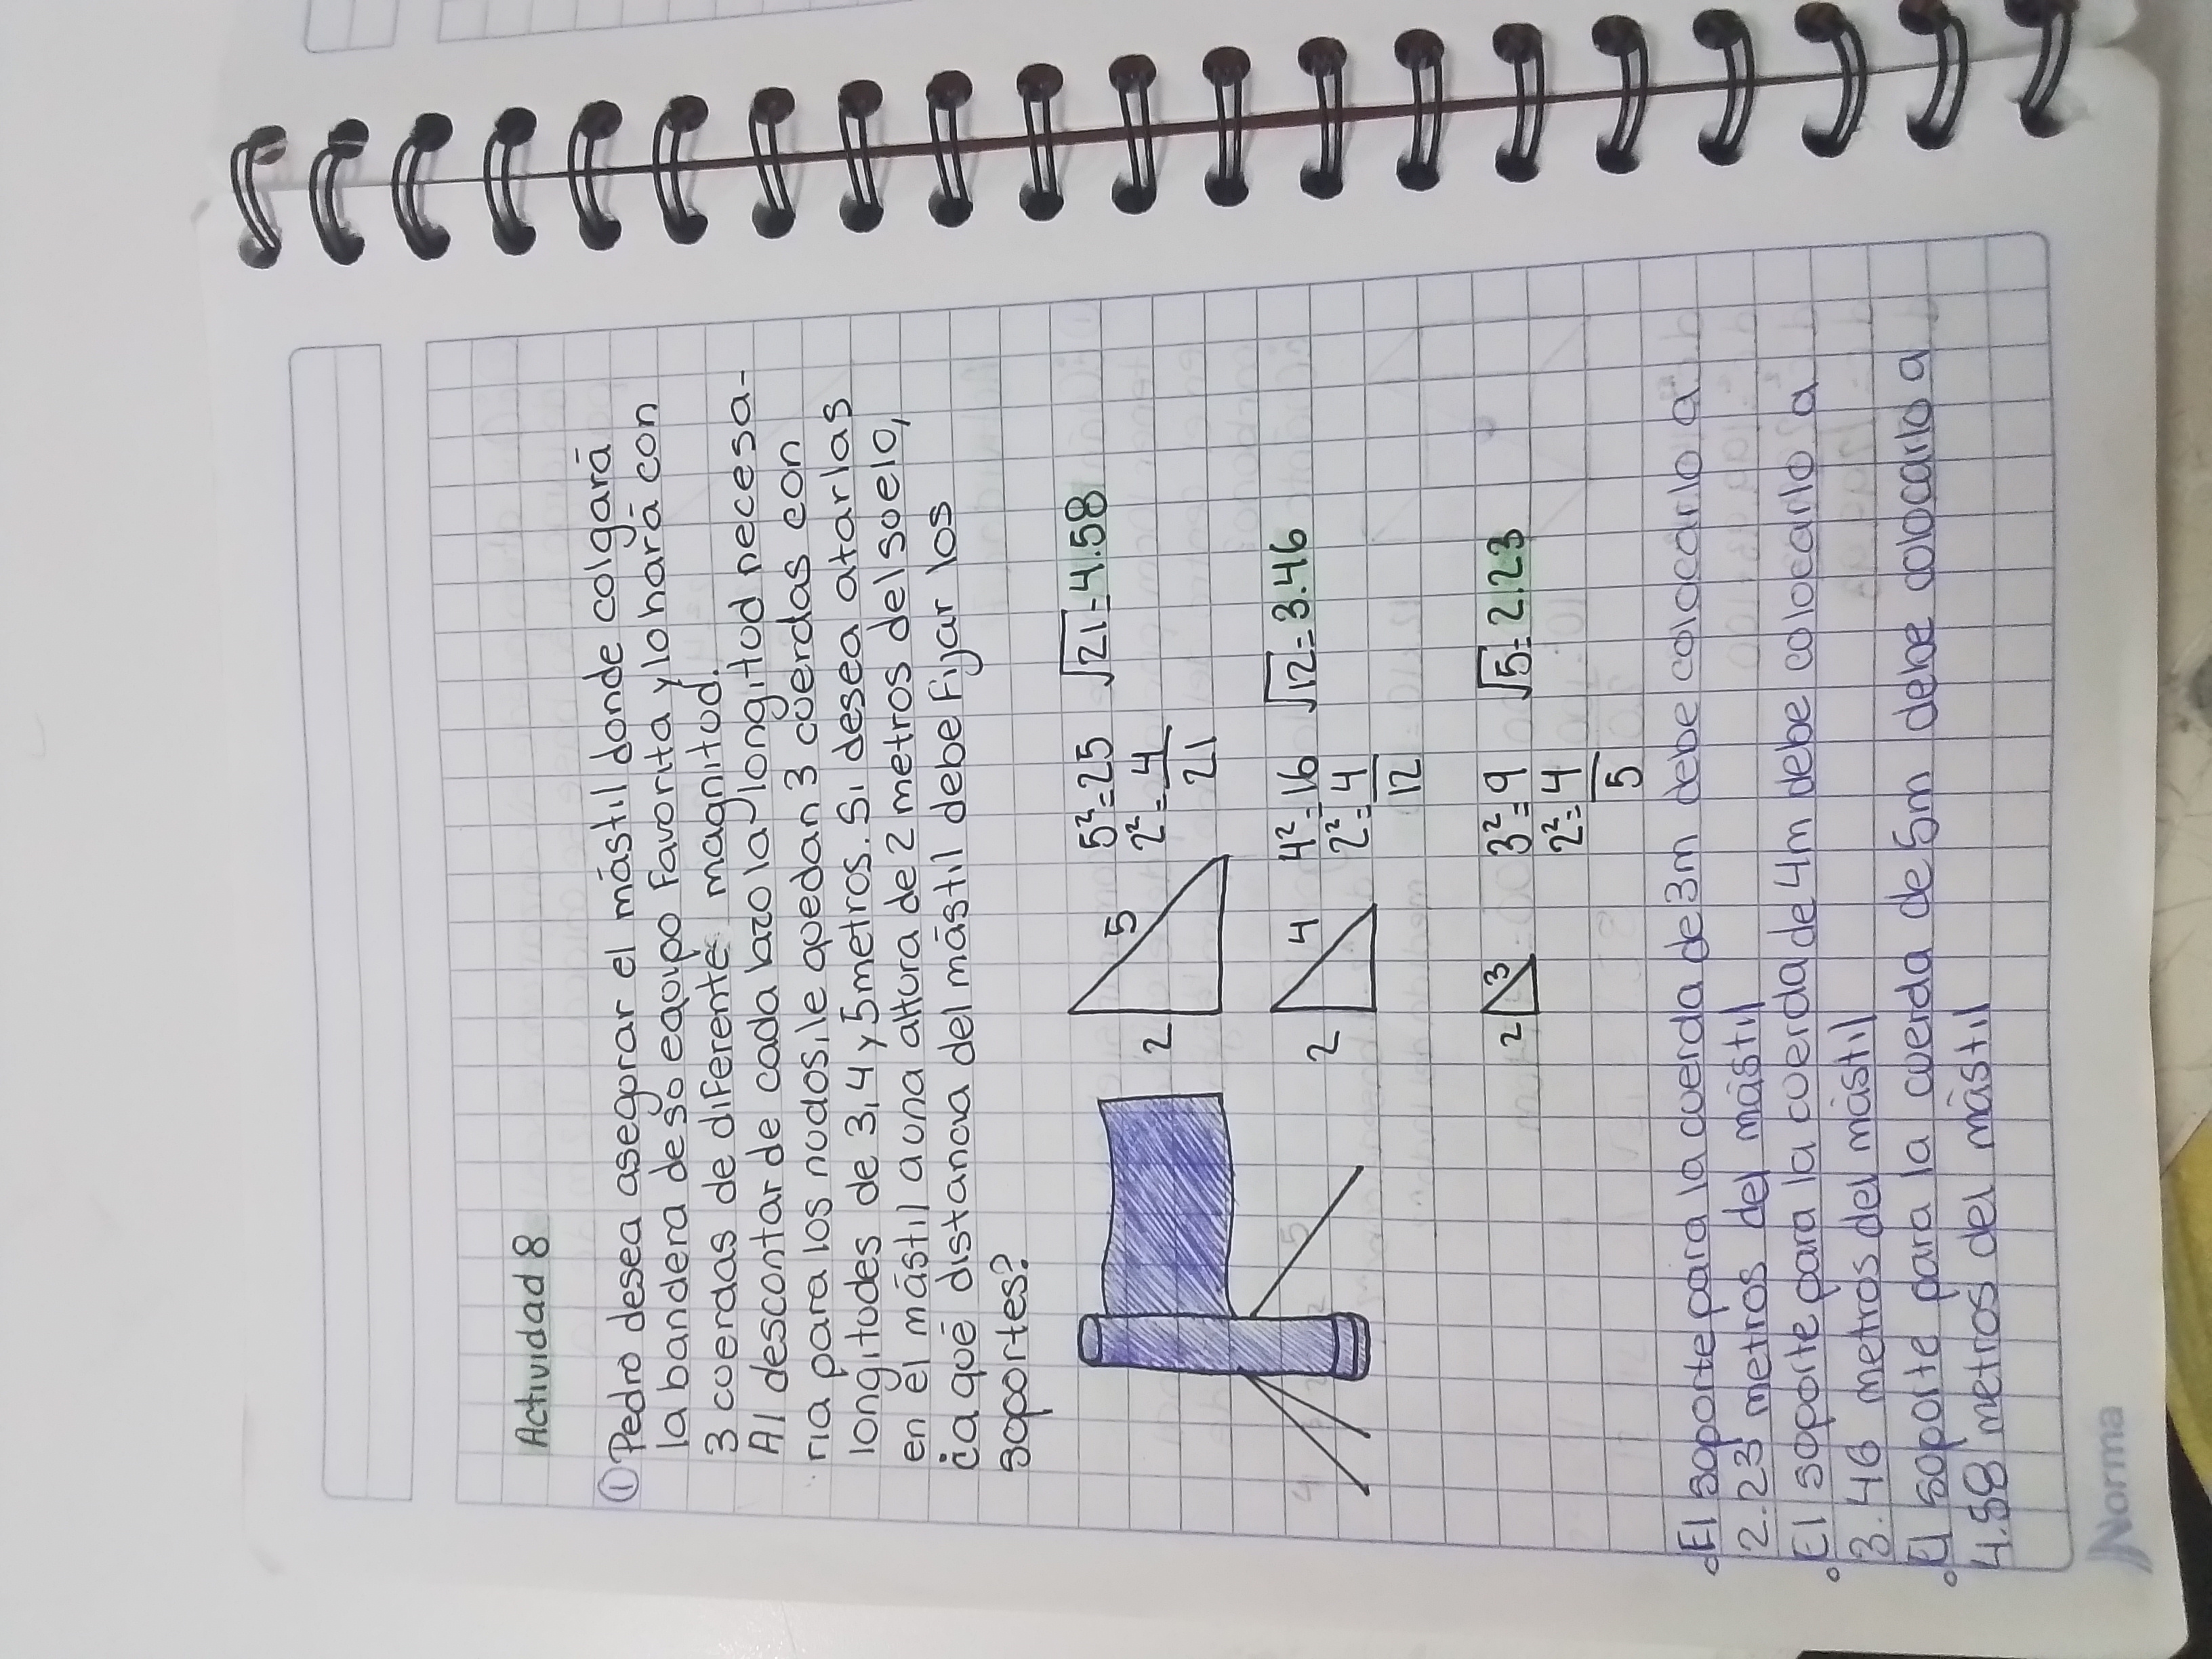 Actividad 8
① Pedro desea asegurar el mástil donde colgará
la bandera de su equipo favorita y lo hará con
3 cuerdas de diferente magnitud.
Al descontar de cada lazo la longitud necesa-
ria para los nudos, le quedan 3 cuerdas con
longitudes de 3, 4 y 5 metros. Si desea atarlas
en el mástil a una altura de 2 metros del suelo,
¿a qué distancia del mástil debe fijar los
soportes?
2 5 5²=25 √21=4.58
2²=4
21
2 4 4²=16 √12=3.46
2²=4
12
2 3 3²=9 √5=2.23
2²=4
5
• El soporte para la cuerda de 3m debe colocarlo a
2.23 metros del mástil
• El soporte para la cuerda de 4m debe colocarlo a
3.46 metros del mástil
• El soporte para la cuerda de 5m debe colocarlo a
4.58 metros del mástil
Norma